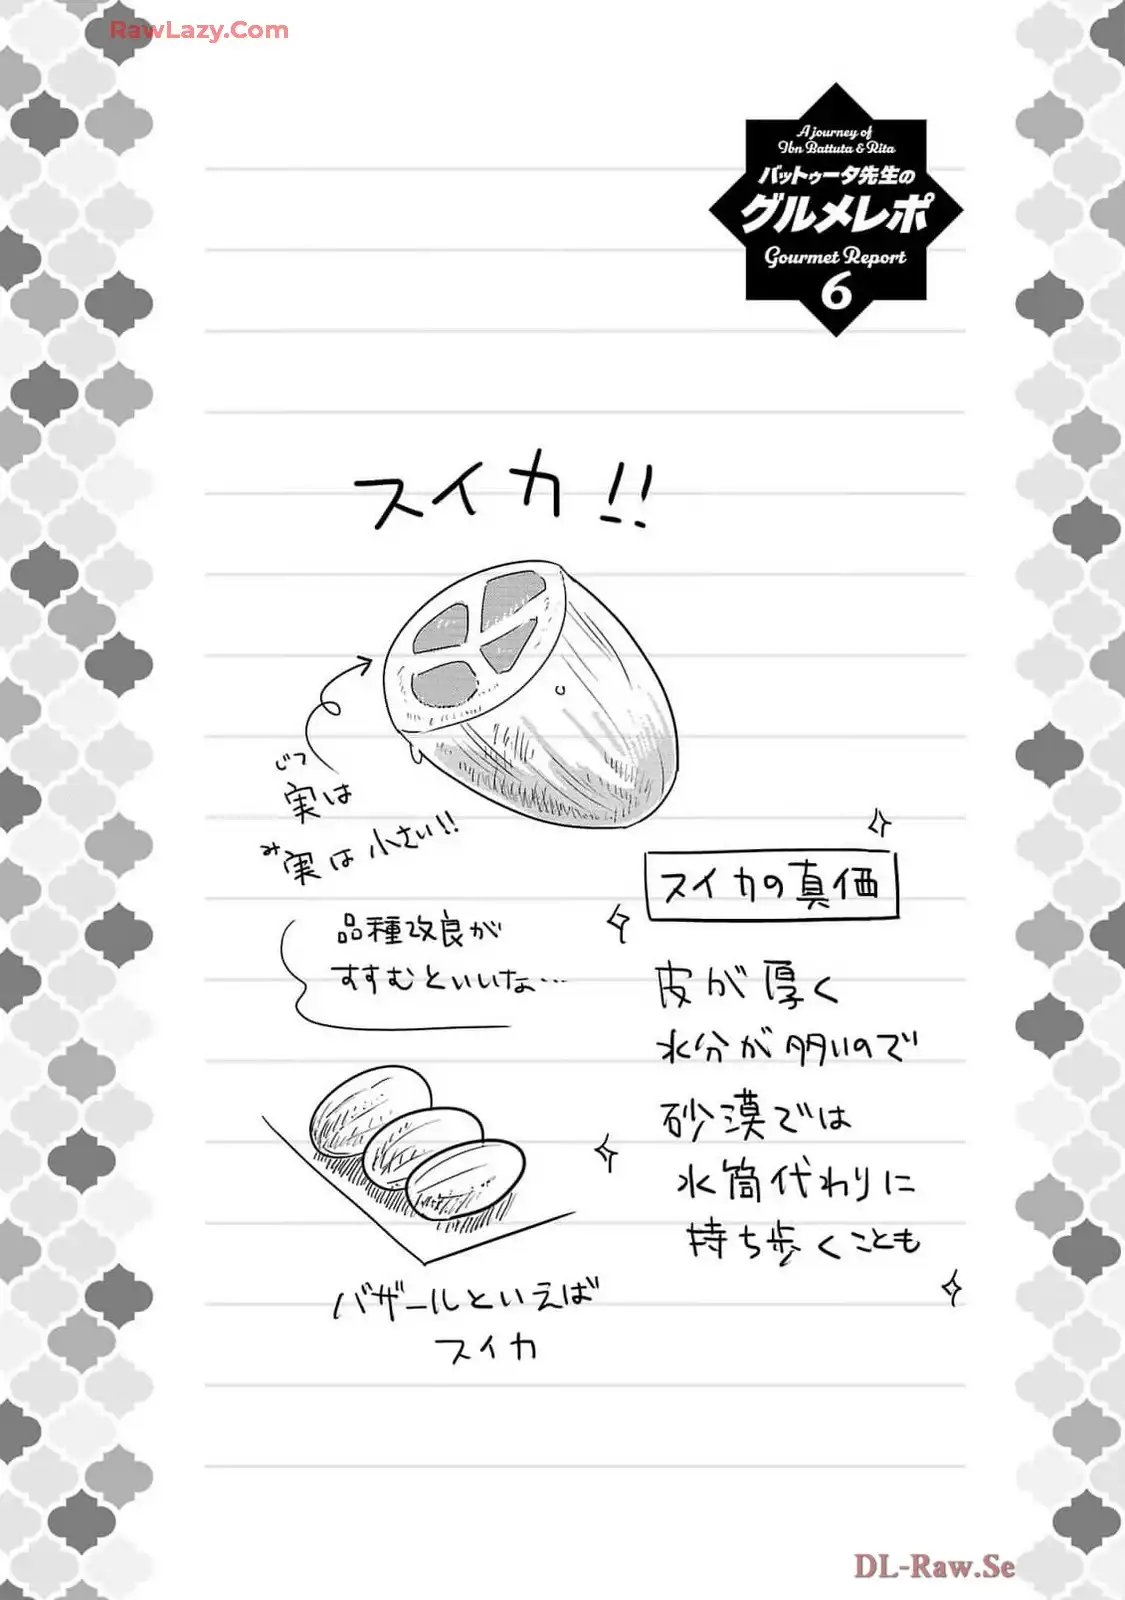 RawLazy.Com
A journey of
Ibn Battuta & Rita
バットゥータ先生の
グルメレポ
Gourmet Report
6
スイカ!!
じつ
実は
み
実は小さい!!
品種改良が
すすむといいな…
スイカの真価
皮が厚く
水分が多いので
砂漠では
水筒代わりに
持ち歩くことも
バザールといえば
スイカ
DL-Raw.Se